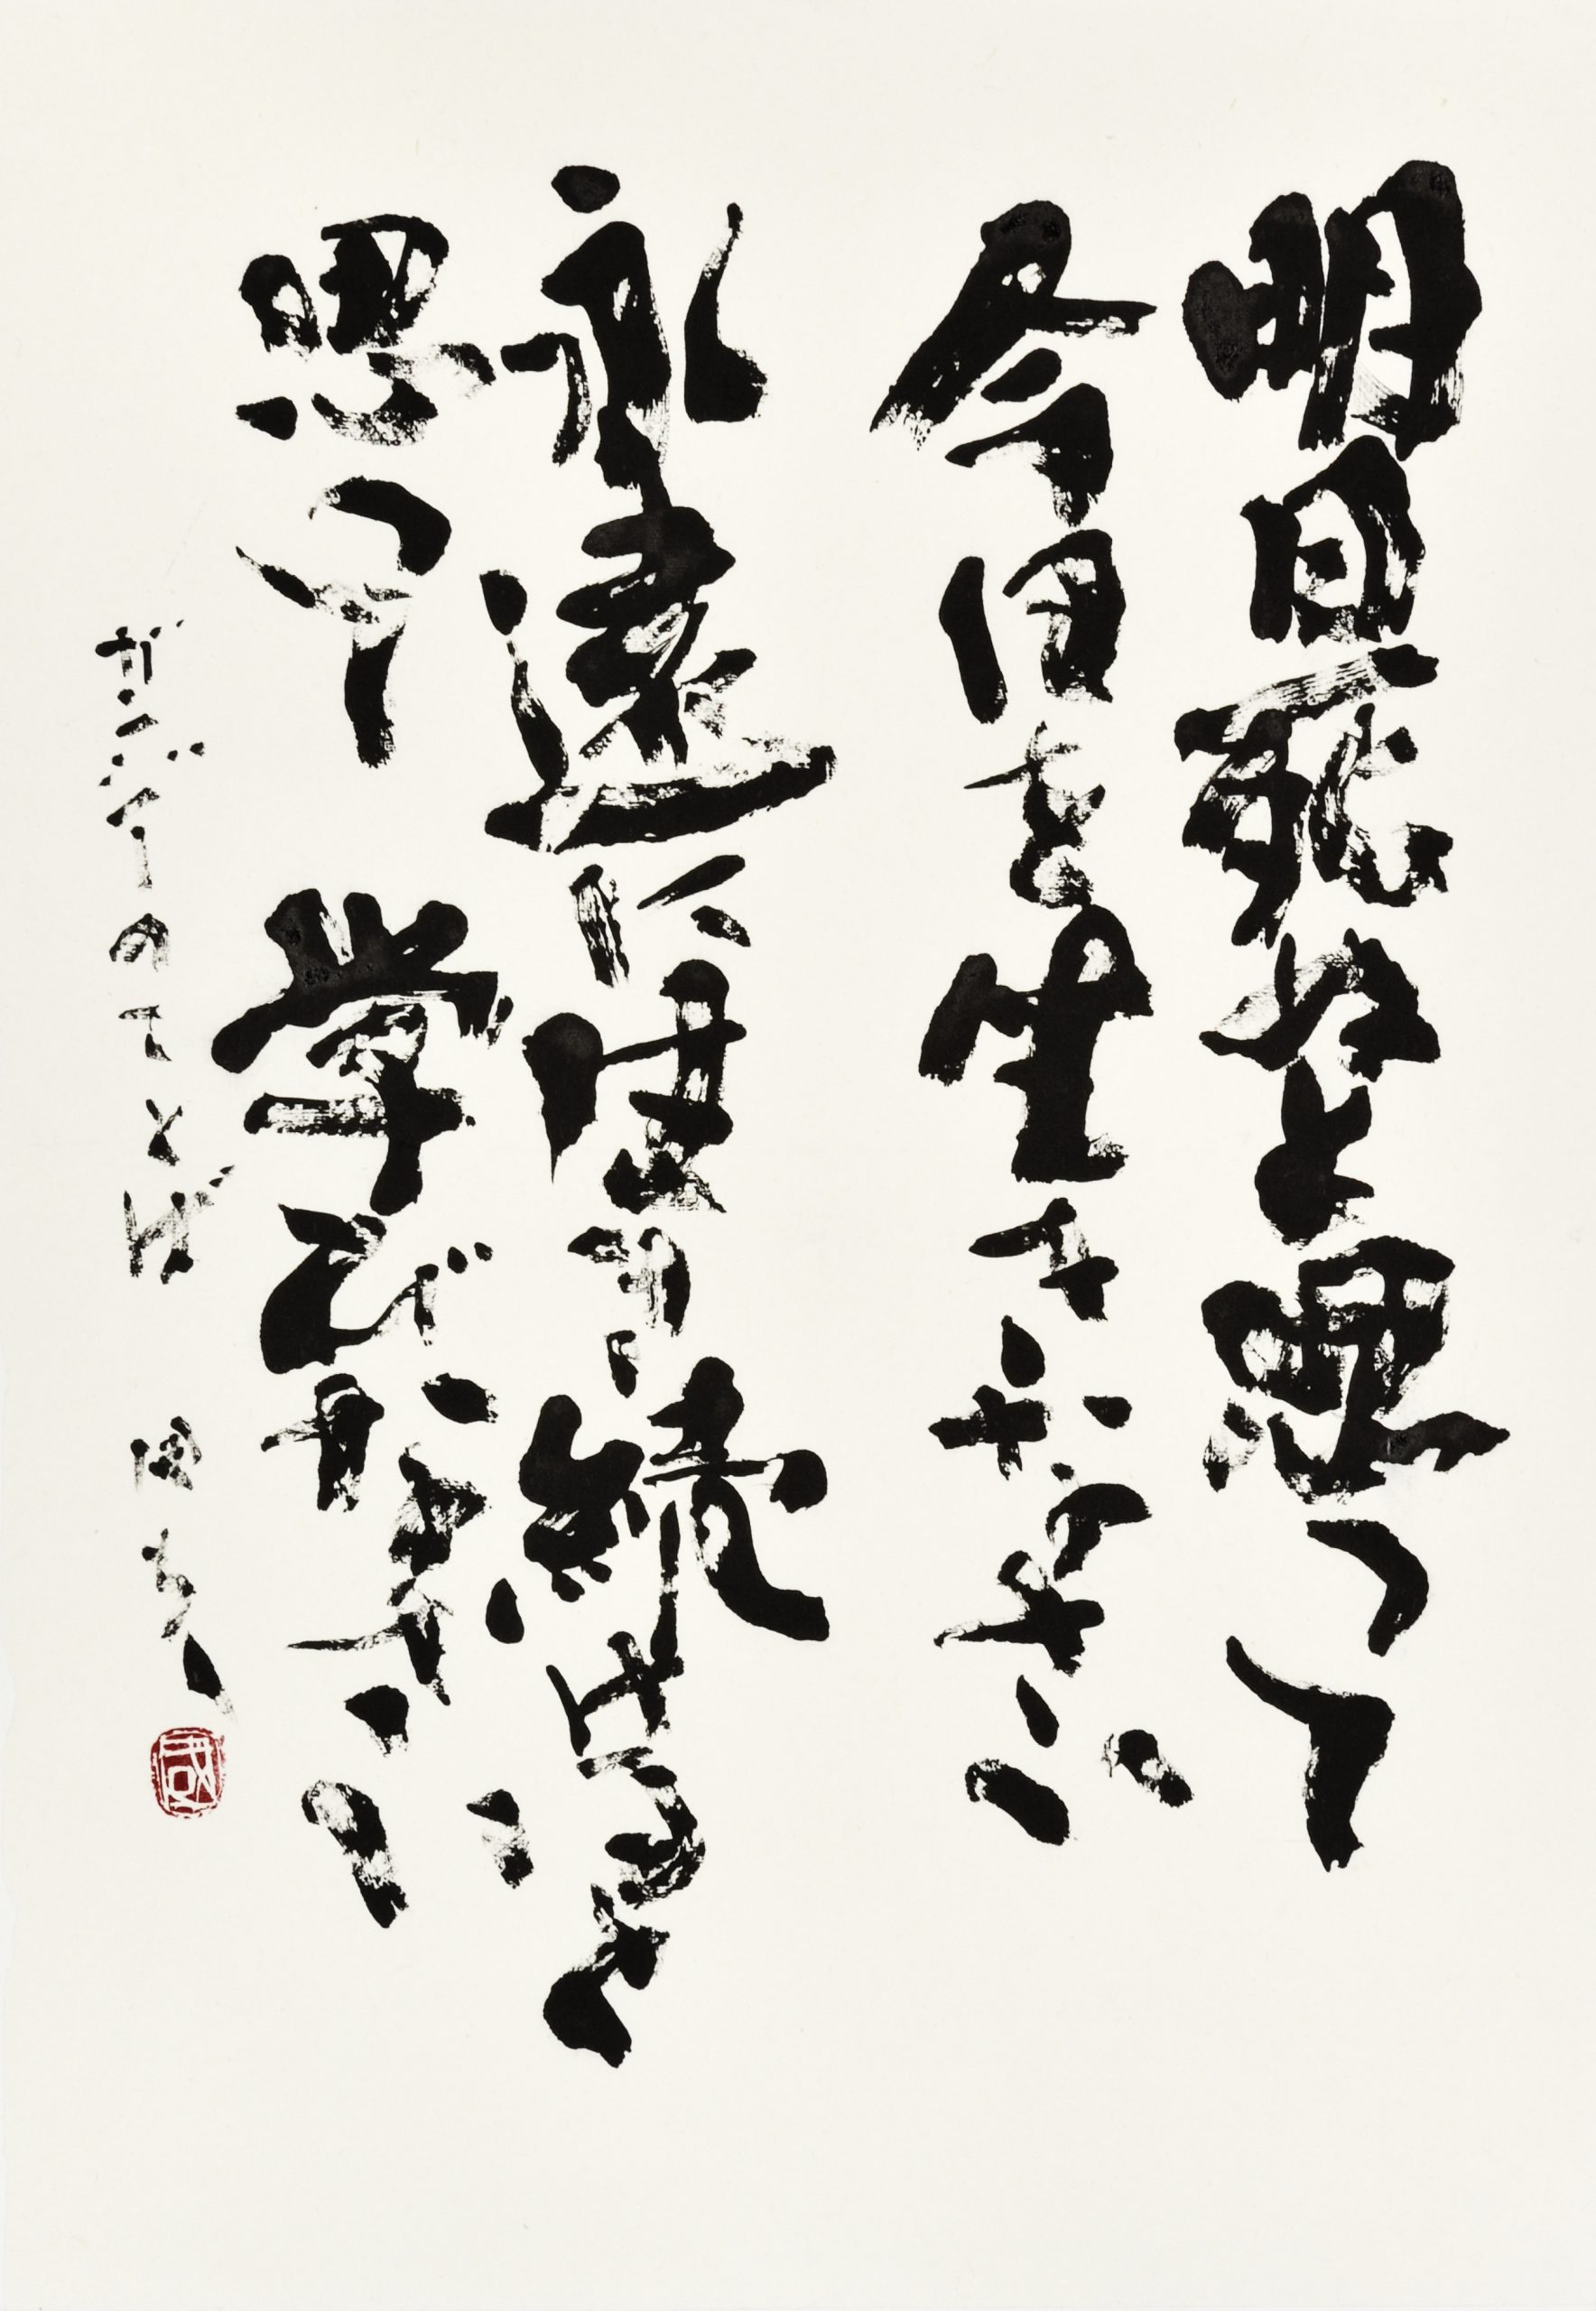 明日死ぬと思って
今日を生きなさい
永遠に生き続けると
思って 学びなさい
ガンジーのことば 國